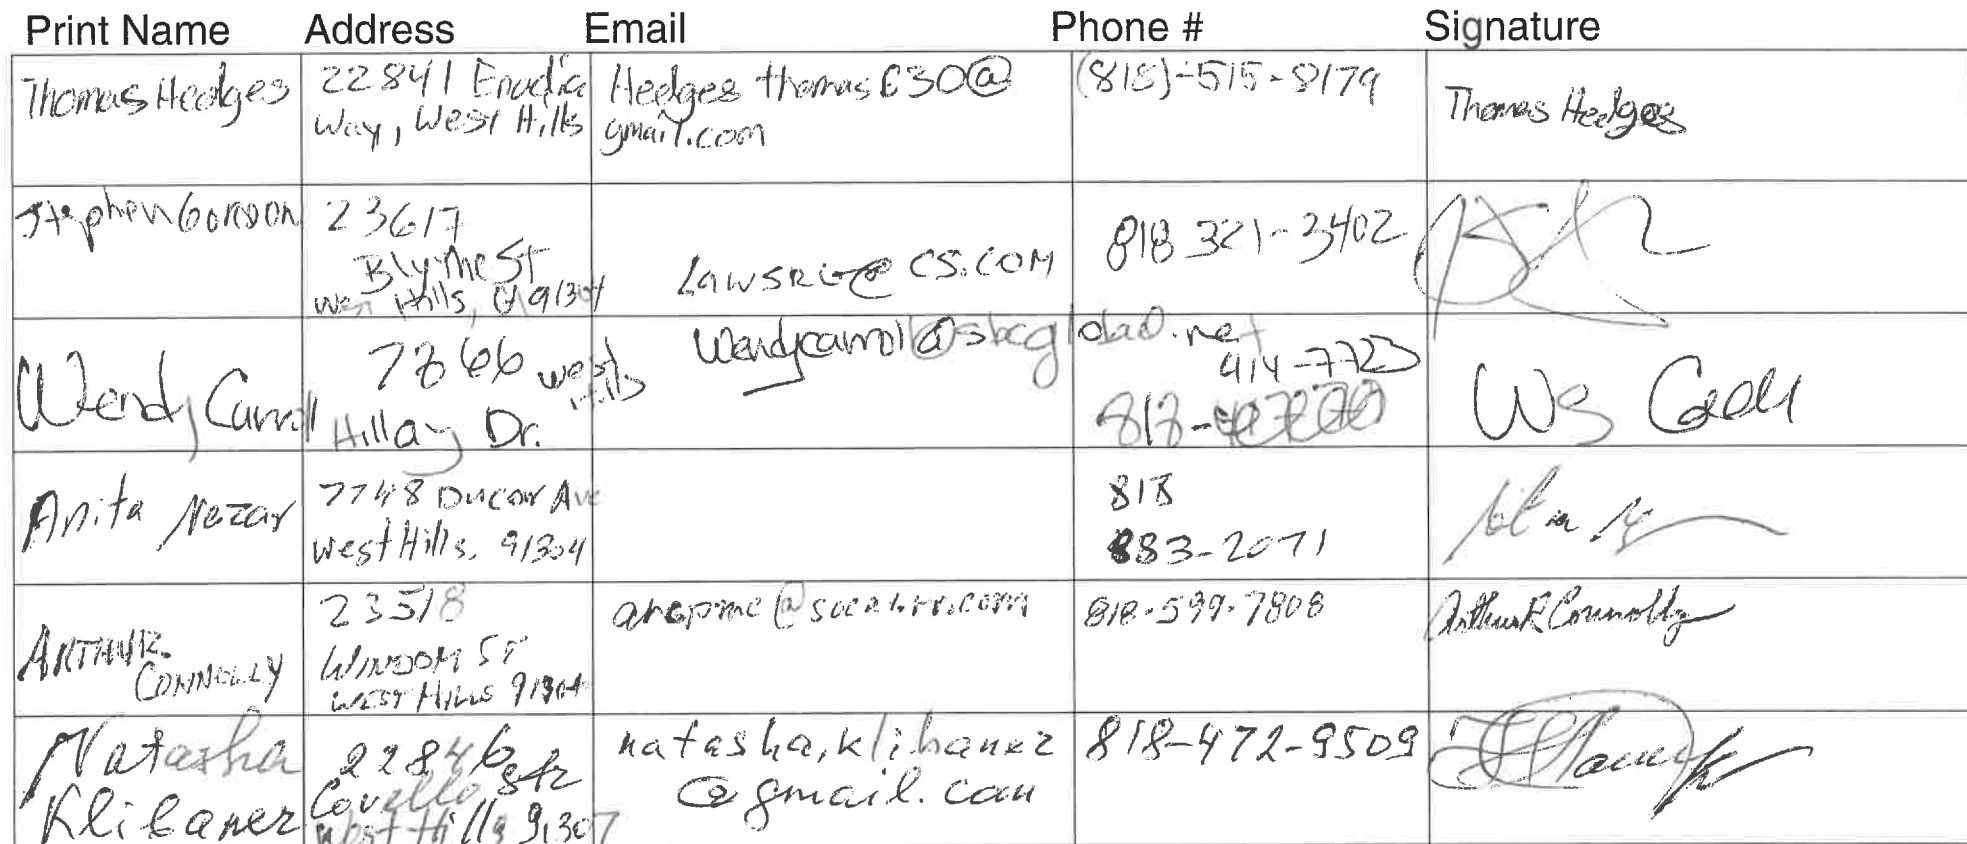 Print Name Address Email Phone # Signature
Thomas Hedges
22841 Enadia
Way, West Hills
Hedges thomas630@
gmail.com
(818)-515-8179
Thomas Hedges
Stephen Gordon
23617
Blythe St
West Hills, CA 91304
@CS.COM
818 321-3402
Wendy Carroll
7866 West
Hills
Hillary Dr.
wendycarrol@sbcglobal.net
414-7723
818-
Anita Nazar
7748 Ducor Ave
West Hills, 91304
818
883-2071
ARTHUR
CONNOLLY
23518
WINDOM ST
WEST HILLS 91304
818-599-7808
Arthur R Connolly
Natasha
Klibaner
22846
Covello str
West Hills 91307
natasha.klibaner
@gmail.com
818-472-9509